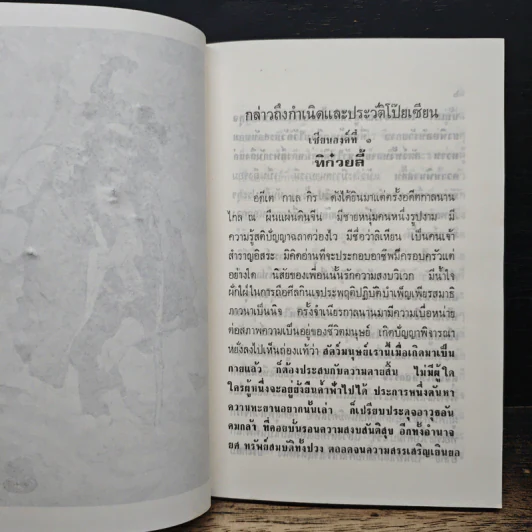 กล่าวถึงกำเนิดและประวัติโป๊ยเซียน
เซียนองค์ที่ ๑
ทิก๋วยลี้
อตีเต กาเล กิร ดังได้ยินมาแต่ครั้งอดีตกาลนาน
ไกล ณ ผืนแผ่นดินจีน มีชายหนุ่มคนหนึ่งรูปงาม มี
ความรู้สติปัญญาฉลาดว่องไว มีชื่อว่าลิเหียน เป็นคนเจ้า
สำราญอิสระ มิคิดอ่านที่จะประกอบอาชีพมีครอบครัวแต่
อย่างใด นิสัยของเพื่อนนั้นรักความสงบวิเวก มีน้ำใจ
ฝักใฝ่ในการถือศีลกินเจประพฤติปฏิบัติบำเพ็ญเพียรสมาธิ
ภาวนาเป็นนิจ ครั้งจำเนียรกาลนานมามีความเบื่อหน่าย
ต่อสภาพความเป็นอยู่ของชีวิตมนุษย์ เกิดปัญญาพิจารณา
หยั่งลงไปเห็นถ่องแท้ว่า สัตว์มนุษย์เรานี้เมื่อเกิดมาเป็น
กายแล้ว ก็ต้องประสบกับความตายสิ้น ไม่มีผู้ใด
ใครผู้หนึ่งจะอยู่ยั่งยืนค้ำฟ้าไปได้ ประการหนึ่งตัณหา
ความทะยานอยากนั้นเล่า ก็เปรียบประดุจอาวุธอัน
คมกล้า ที่คอยบั่นรอนความสงบสันติสุข อีกทั้งอำนาจ
ยศ ทรัพย์สมบัติทั้งปวง ตลอดจนความสรรเสริญเยินยอ